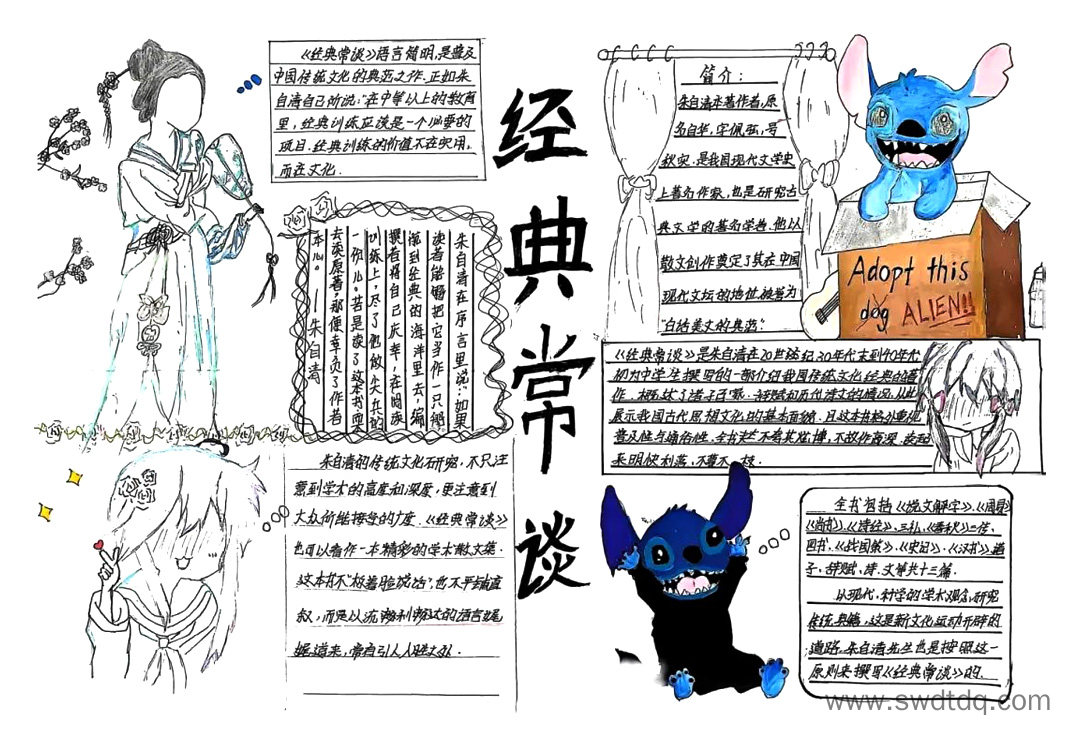 《经典常谈》语言简明,是普及
中国传统文化的典范之作.正如朱
自清自己所说:"在中等以上的教育
里,经典训练应该是一个必要的
项目.经典训练的价值不在实用,
而在文化.
朱自清在序言里说:如果
读者能够把它当作一只船
航到经典的海洋里去,编
撰者将自己庆幸,在阅读
训练上,尽了他做尖兵的
一份儿。若是读了这本书而
去读原著,那便辜负了作者
本心。——朱自清
朱自清的传统文化研究,不只注
意到学术的高度和深度,更注意到
大众所能接受的广度.《经典常谈》
也可以看作一本精彩的学术散文集.
这本书不"板着脸说话",也不平铺直
叙,而是以流畅利畅达的语言娓
娓道来,常有引人入胜之处.
经
典
常
谈
简介:
朱自清本著作者,原
名自华,字佩弦,号
秋实.是我国现代文学史
上著名作家,也是研究古
典文学的著名学者.他以
散文创作奠定了其在中国
现代文坛的地位.被誉为
"白话美文的典范"
Adopt this
dog ALIEN!!
《经典常谈》是朱自清在20世纪30年代末到40年代
初为中学生撰写的一部介绍我国传统文化经典的著
作.概述了诸子百家.辞赋和历代诗文的情况,从此
展示我国古代思想文化的基本面貌.且这本书格外重视
普及性与通俗性.全书
采明快利落,不蔓不枝.
全书包括《说文解字》《周易》
《尚书》.《诗经》.三礼.《春秋》三传.
四书.《战国策》.《史记》.《汉书》.诸
子.辞赋.诗.文等共十三篇.
以现代.科学的学术观念,研究
传统典籍,这是新文化运动开辟的
道路,朱自清先生也是按照这一
原则来撰写《经典常谈》的.
www.swdtdq.com